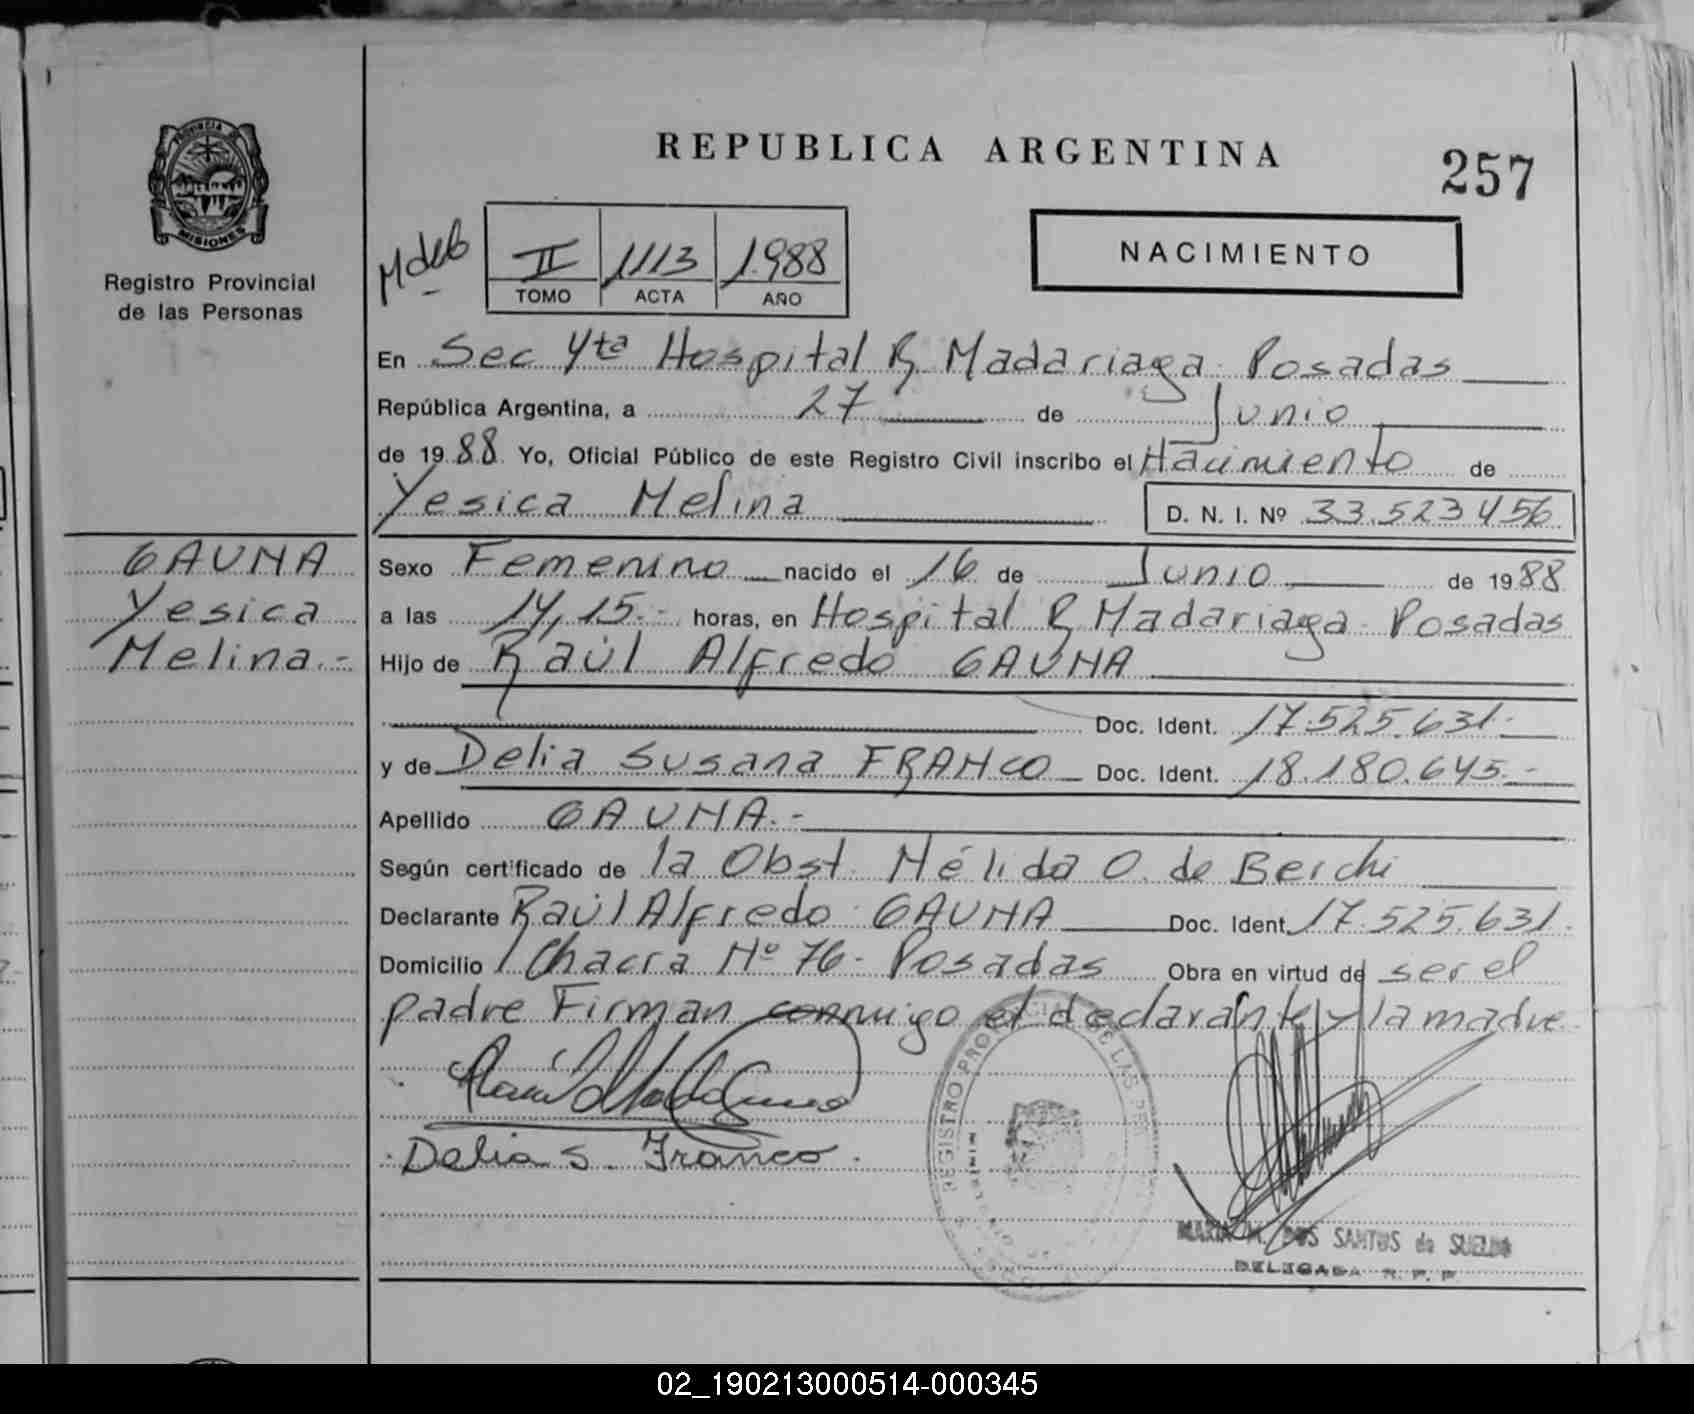 PROVINCIA DE
MISIONES
Registro Provincial
de las Personas
GAUNA
Yesica
Melina.-
REPUBLICA ARGENTINA
257
II 1113 1988
TOMO ACTA AÑO
NACIMIENTO
En Sec 4ta Hospital R Madariaga Posadas
República Argentina, a 27 de Junio
de 1988 Yo, Oficial Público de este Registro Civil inscribo el Nacimiento de
Yesica Melina D. N. I. Nº 33.523456
Sexo Femenino nacido el 16 de Junio de 1988
a las 14,15.- horas, en Hospital R Madariaga Posadas
Hijo de Raúl Alfredo GAUNA
Doc. Ident. 17.525.631.-
y de Delia Susana FRANCO Doc. Ident. 18.180.645.-
Apellido GAUNA.-
Según certificado de la Obst. Nélida O. de Berchi
Declarante Raúl Alfredo GAUNA Doc. Ident. 17.525.631.
Domicilio Chacra Nº 76- Posadas Obra en virtud de ser el
padre Firman conmigo el declarante y la madre
Delia S. Franco.
REGISTRO PROVINCIAL DE LAS PER
MINISTERIO DE
MARIA M. DOS SANTOS de SUELDO
DELEGADA R. P. P.
02_190213000514-000345